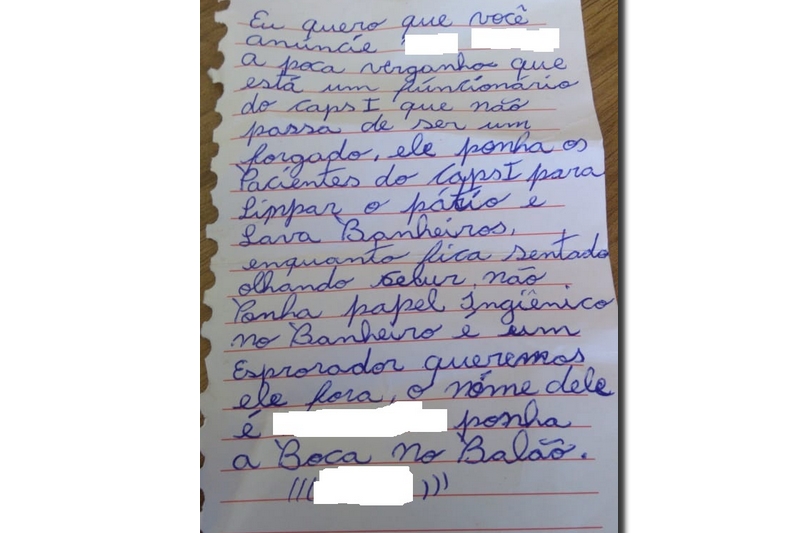 Eu quero que você
anúncie
a poca verganho que
está um funcionário
do Caps I que não
passa de ser um
forgado, ele ponha os
Pacientes do CapsI para
Limpar o pátio e
Lava Banheiros,
enquanto fica sentado
olhando não
Ponha papel Ingiênico
no Banheiro e um
Esprorador queremos
ele fora, o nóme dele
é ponha
a Boca no Balão.
((( )))